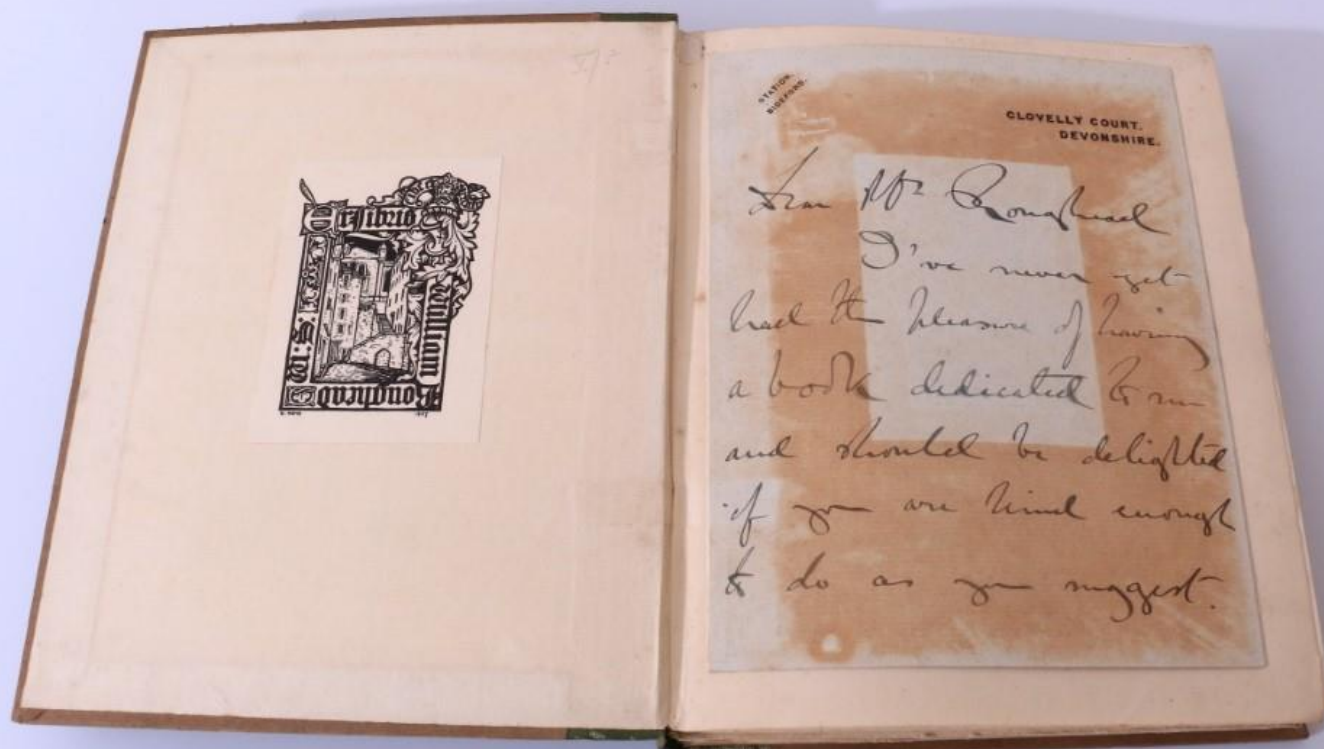 Ex Libris
William
Roughead
W: S:
STATION,
BIDEFORD.
CLOVELLY COURT.
DEVONSHIRE.
Dear Mr Roughead
I've never yet
had the pleasure of having
a book dedicated to me
and should be delighted
if you are kind enough
to do as you suggest.